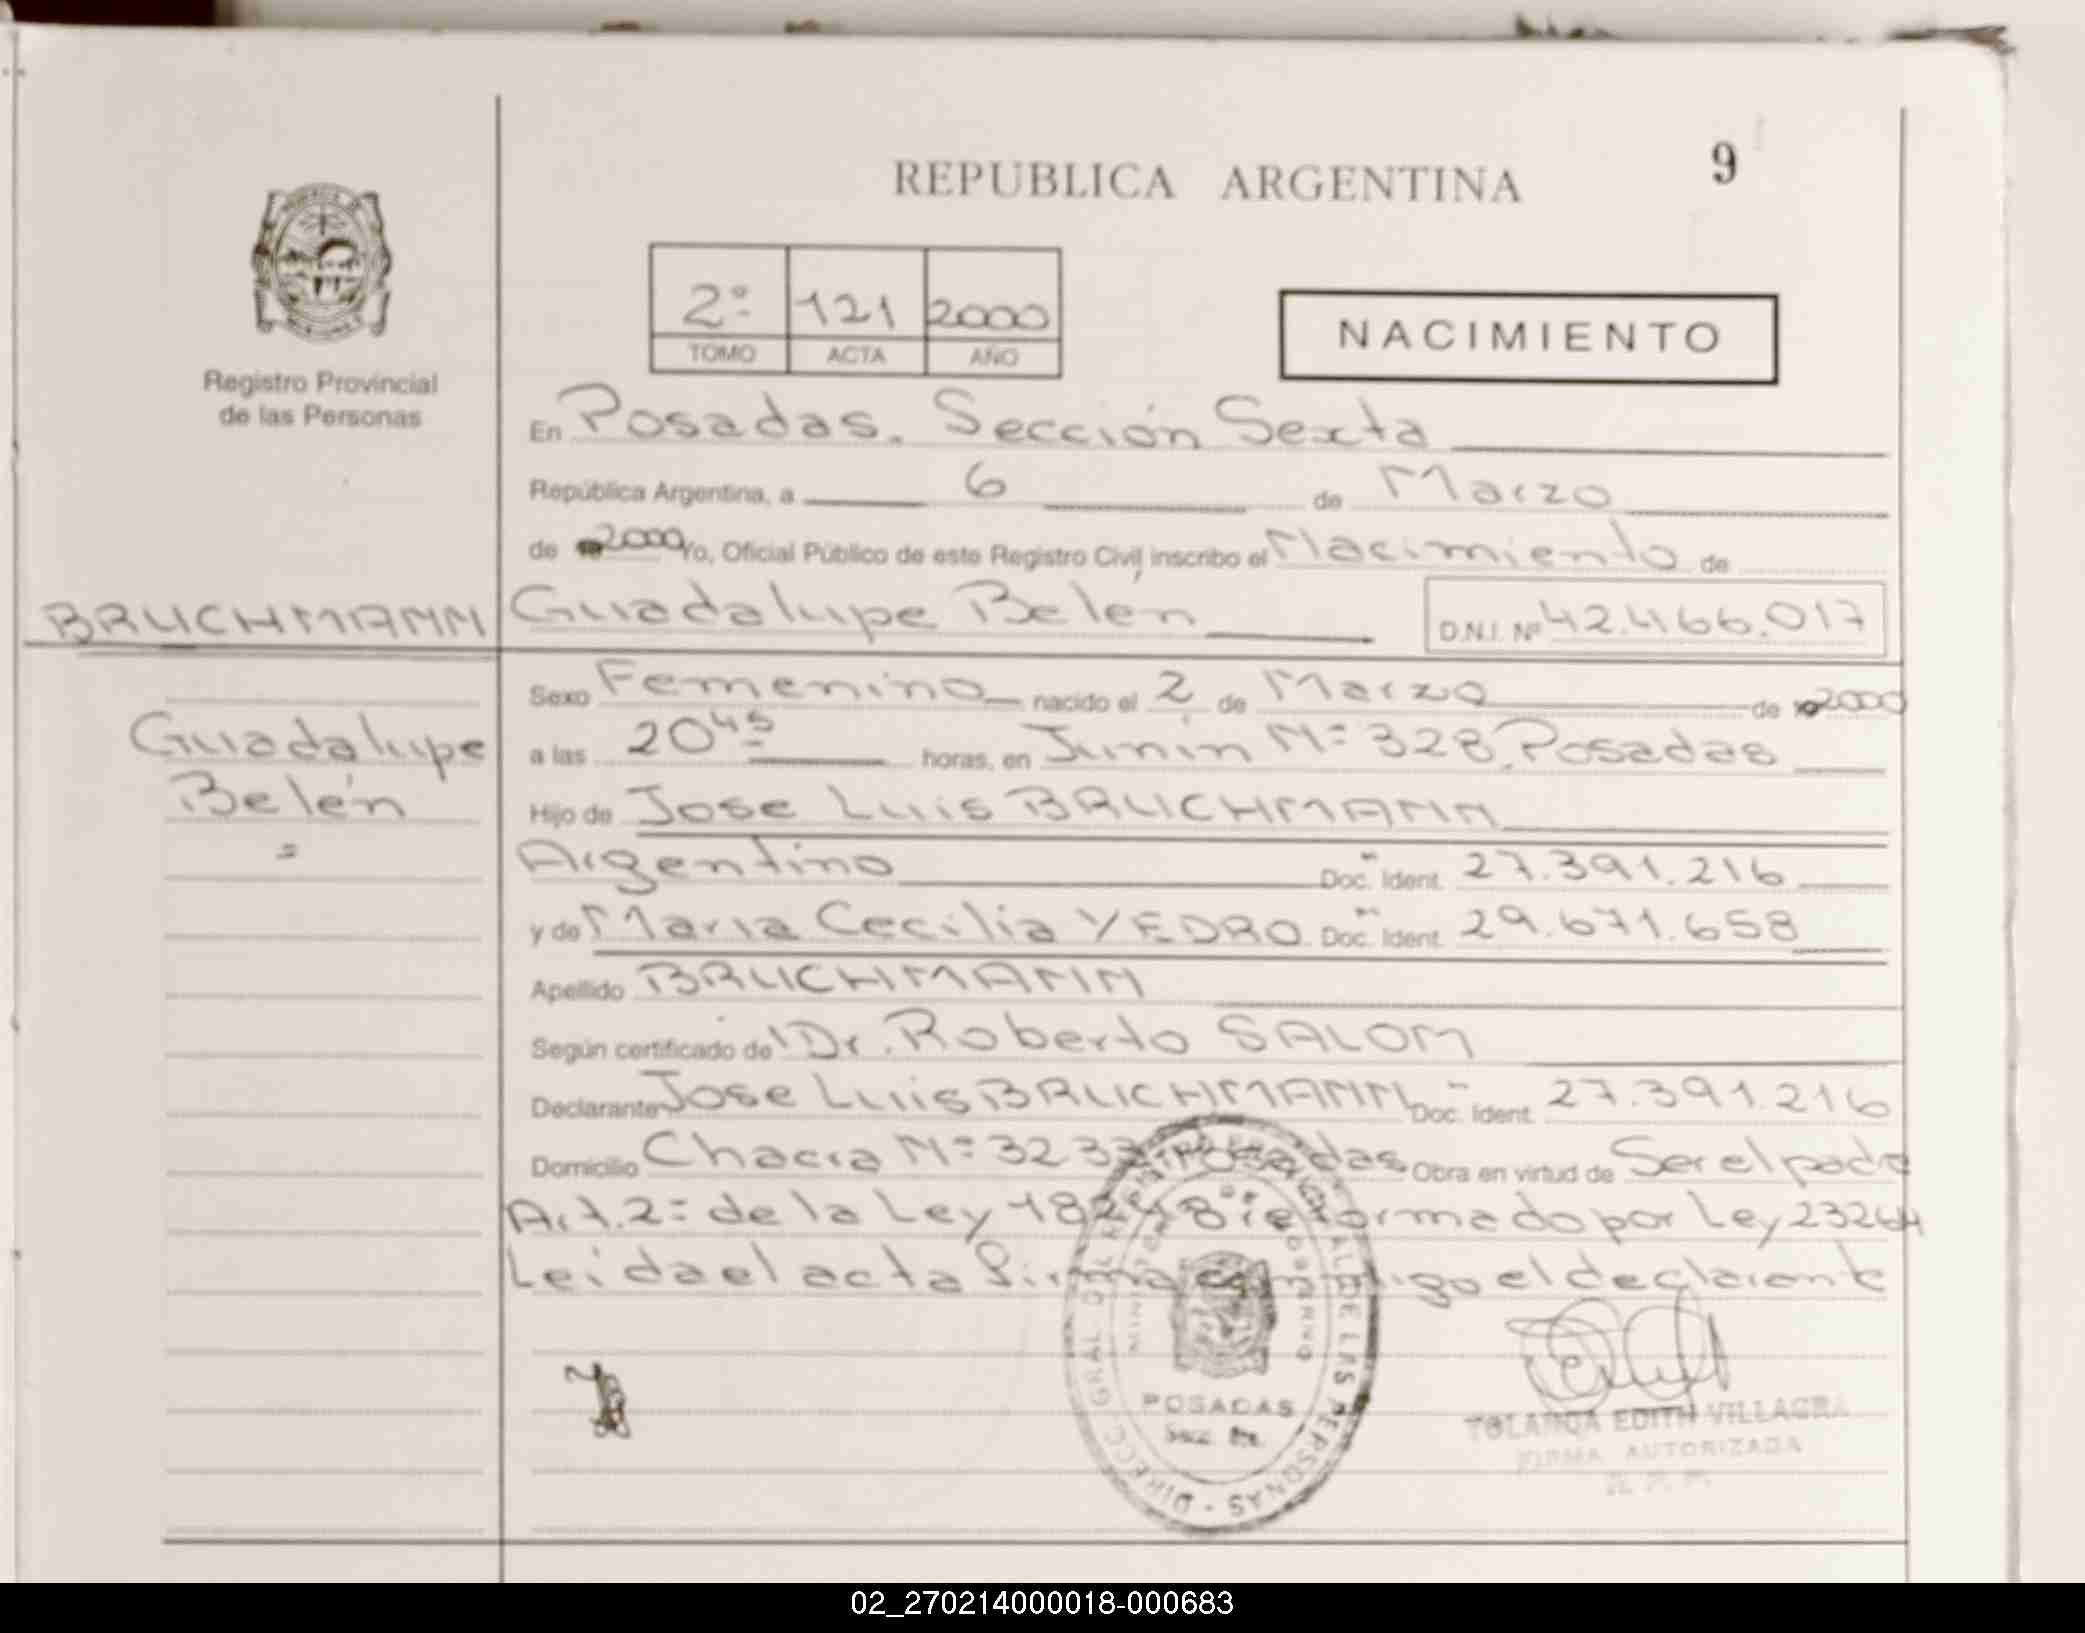 REPUBLICA ARGENTINA
9
2º 121 2000
TOMO ACTA AÑO
NACIMIENTO
Registro Provincial
de las Personas
En Posadas. Sección Sexta
República Argentina, a 6 de Marzo
de 2000 Yo, Oficial Público de este Registro Civil, inscribo el Nacimiento de
BRUCHMANN Guadalupe Belén D.N.I. Nº 42.466.017
Sexo Femenino nacido el 2 de Marzo de 2000
Guadalupe
Belén
a las 20 45 horas, en Junín Nº 328, Posadas
Hijo de Jose Luis BRUCHMANN
Argentino Doc. Ident. 27.391.216
y de Maria Cecilia YEDRO Doc. Ident. 29.671.658
Apellido BRUCHMANN
Según certificado de Dr. Roberto SALOM
Declarante Jose Luis BRUCHMANN Doc. Ident. 27.391.216
Domicilio Chacra Nº 32 33 Posadas Obra en virtud de Ser el padre
Art. 2º de la Ley 18248 reformado por Ley 23264
Leida el acta firma conmigo el declarante
DIRECC. GRAL. DEL REGISTRO PROVINCIAL DE LAS PERSONAS
MINISTERIO DE GOBIERNO
POSADAS
Secc.
EDITH VILLAGRA
FIRMA AUTORIZADA
R. P. P.
02_270214000018-000683